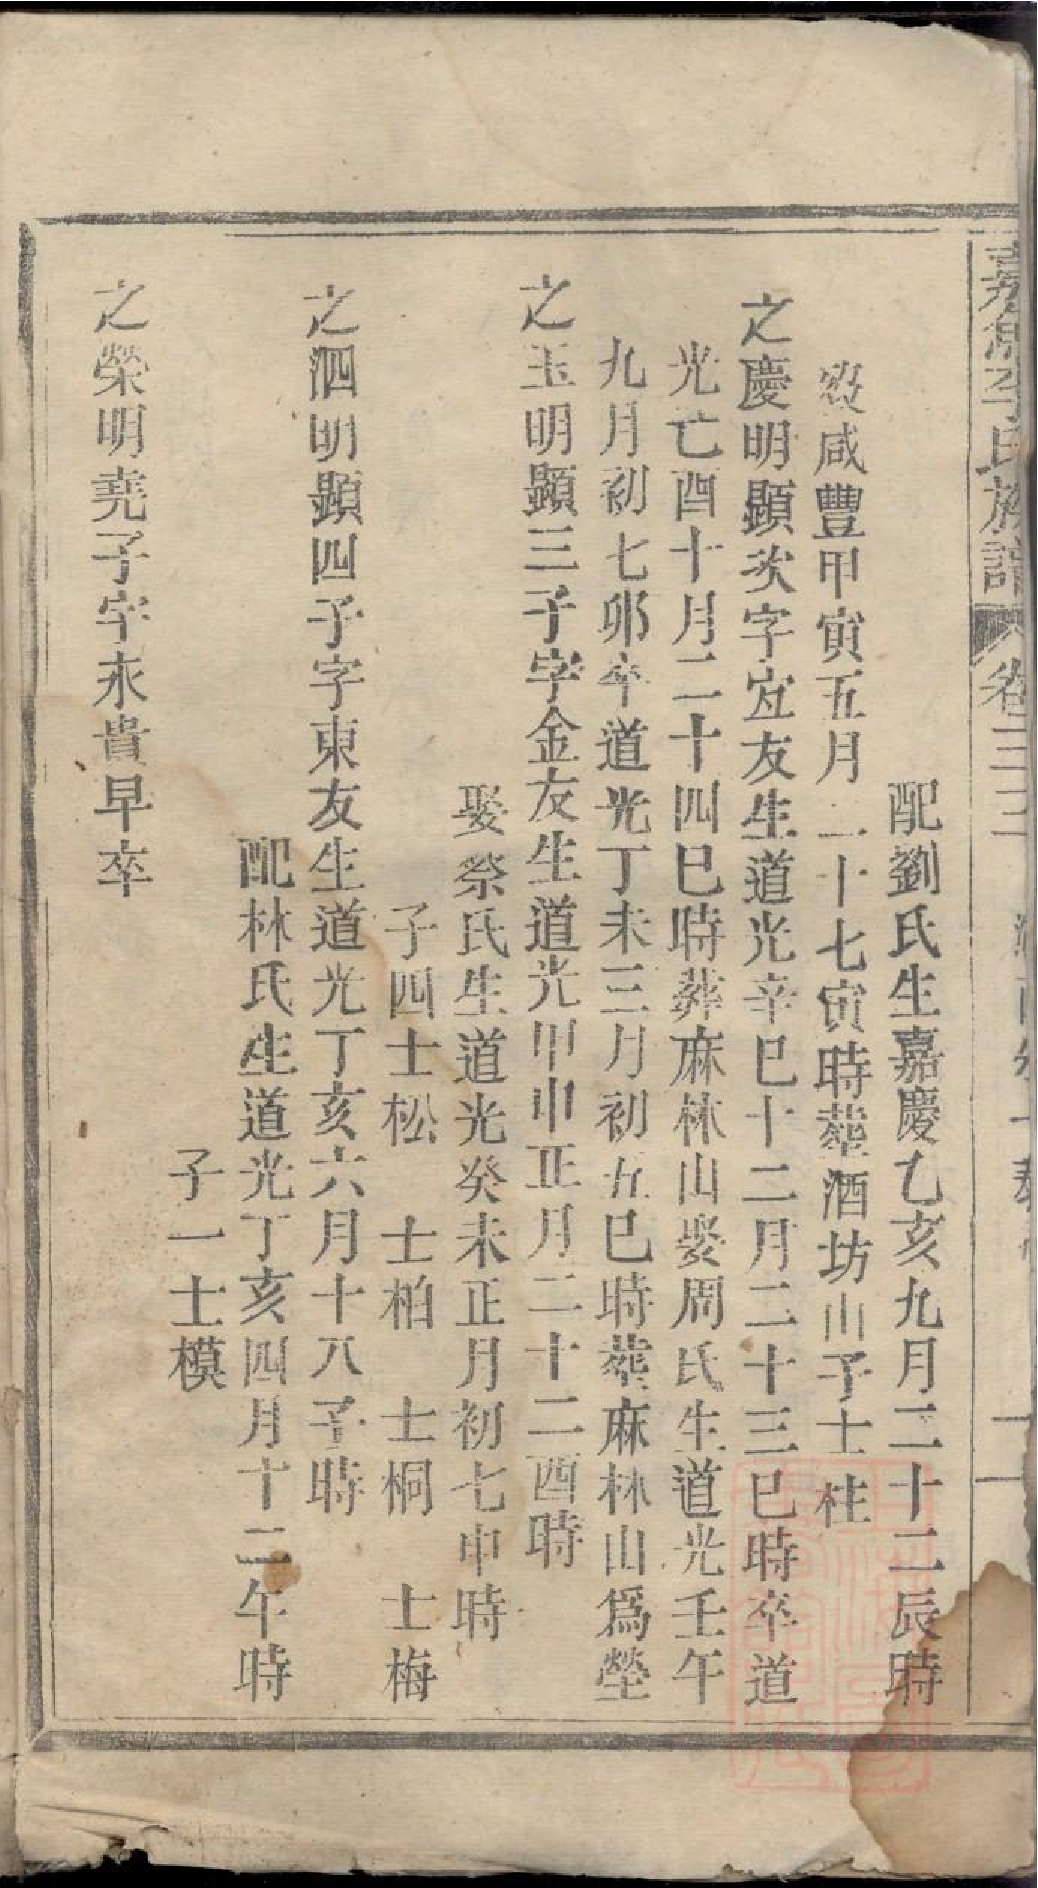 李氏族譜 卷三三
配劉氏生嘉慶乙亥九月二十二辰時
歿咸豐甲寅五月二十七寅時葬酒坊山子士柱
之慶明顯次字宜友生道光辛巳十二月二十三巳時卒道
光亡酉十月二十四巳時葬麻林山娶周氏生道光壬午
九月初七卯卒道光丁未三月初五巳時葬麻林山為塋
之玉明顯三子字金友生道光甲申正月二十二酉時
娶蔡氏生道光癸未正月初七申時
子四士松 士柏 士桐 士梅
之泗明顯四子字東友生道光丁亥六月十八子時
配林氏生道光丁亥四月十二午時
子一士模
之榮明堯子字永貴早卒